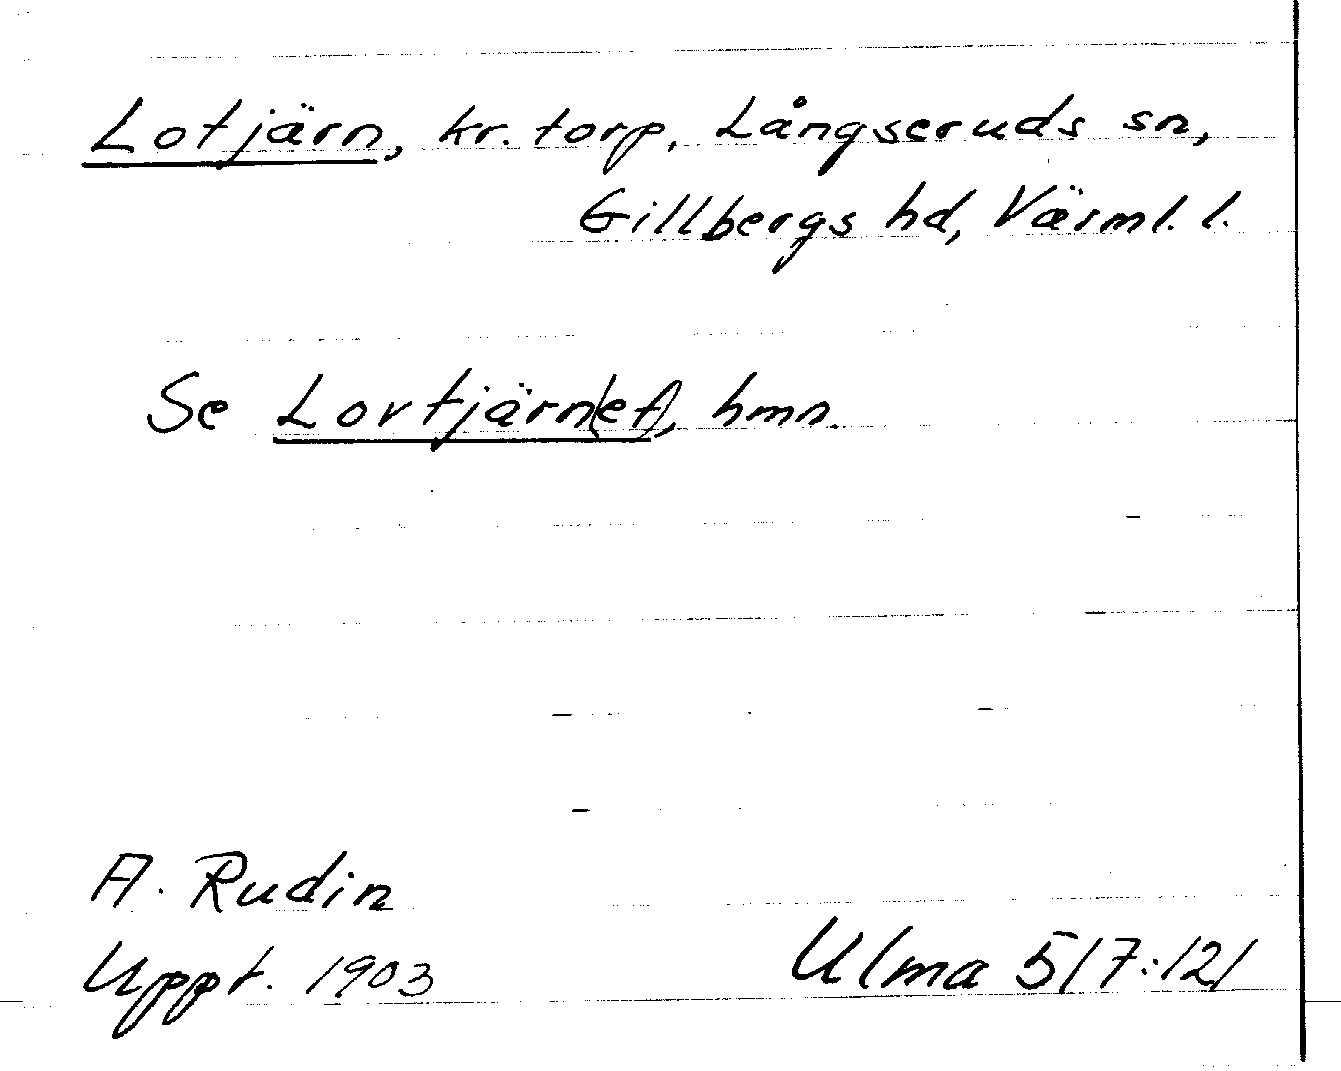 Lotjärn, kr. torp, Långseruds sn,
Gillbergs hd, Värml. l.
Se Lortjärn(et), hmn.
A. Rudin
Uppt. 1903
Ulma 517:121